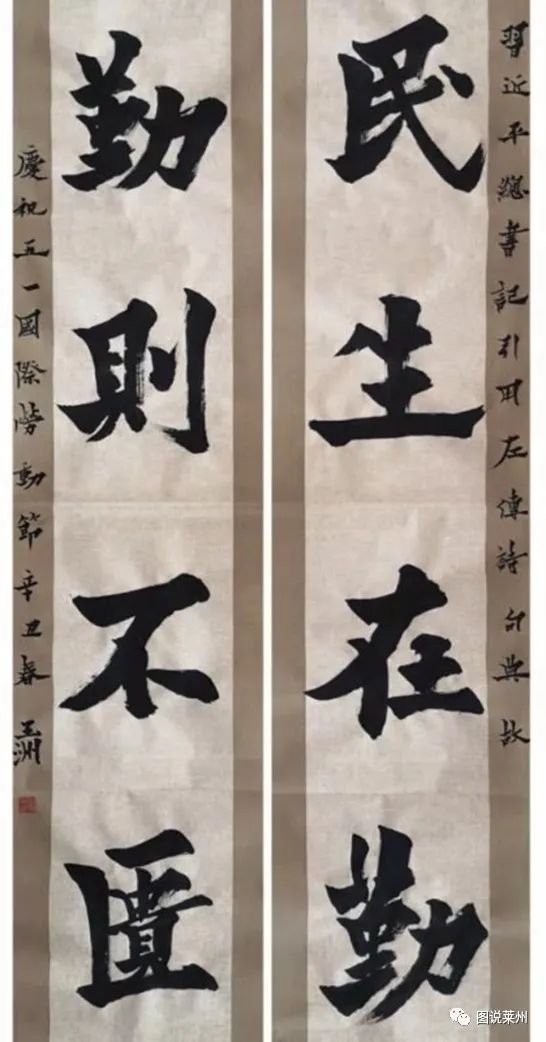 習近平總書記引用左傳詩句典故
民生在勤
勤則不匱
慶祝五一國際勞動節辛丑春玉洲
图说莱州